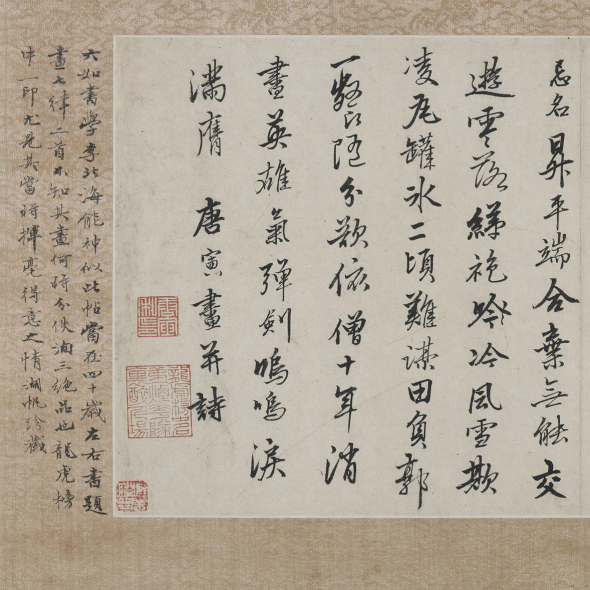 忌名昇平端合棄無能交
遊零落綈袍吟冷風雪欺
凌瓦罐氷二頃難謀田負郭
一隨分欲依僧十年消
盡英雄氣彈劍嗚嗚淚
滿膺 唐寅畫并詩
六如書學李北海能神似此帖當在四十歲左右書題
畫七律二首不知其畫何時分佚洵三絕品也龍虎榜
中一印尤見其當時揮毫得意之情湖帆珍藏